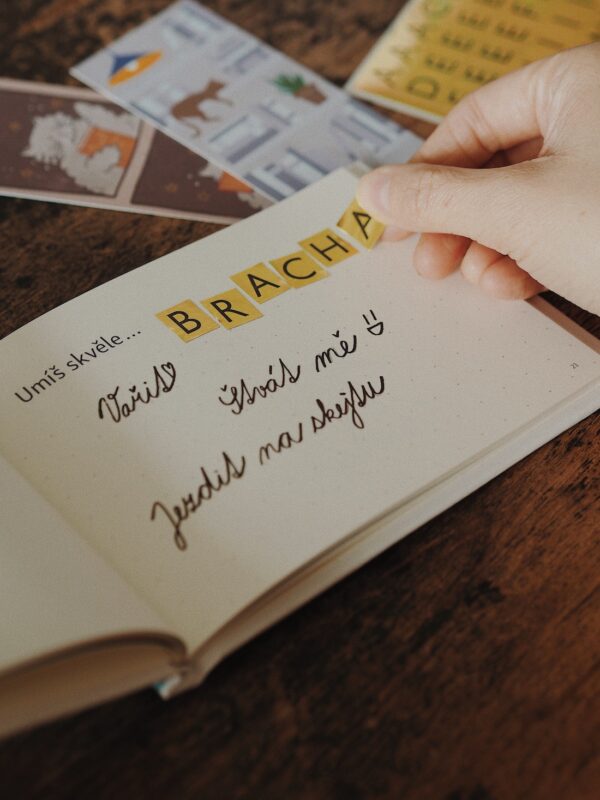 Umíš skvěle...
BRACHA
Vařit♡ Štvát mě
Jezdit na skejtu
21